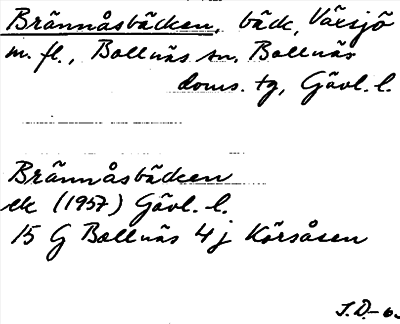 Brännåsbäcken, bäck, Växsjö
m. fl., Bollnäs sn. Bollnäs
doms. tg, Gävl. l.
Brännåsbäcken
ek (1957) Gävl. l.
15 G Bollnäs 4j Körsåsen